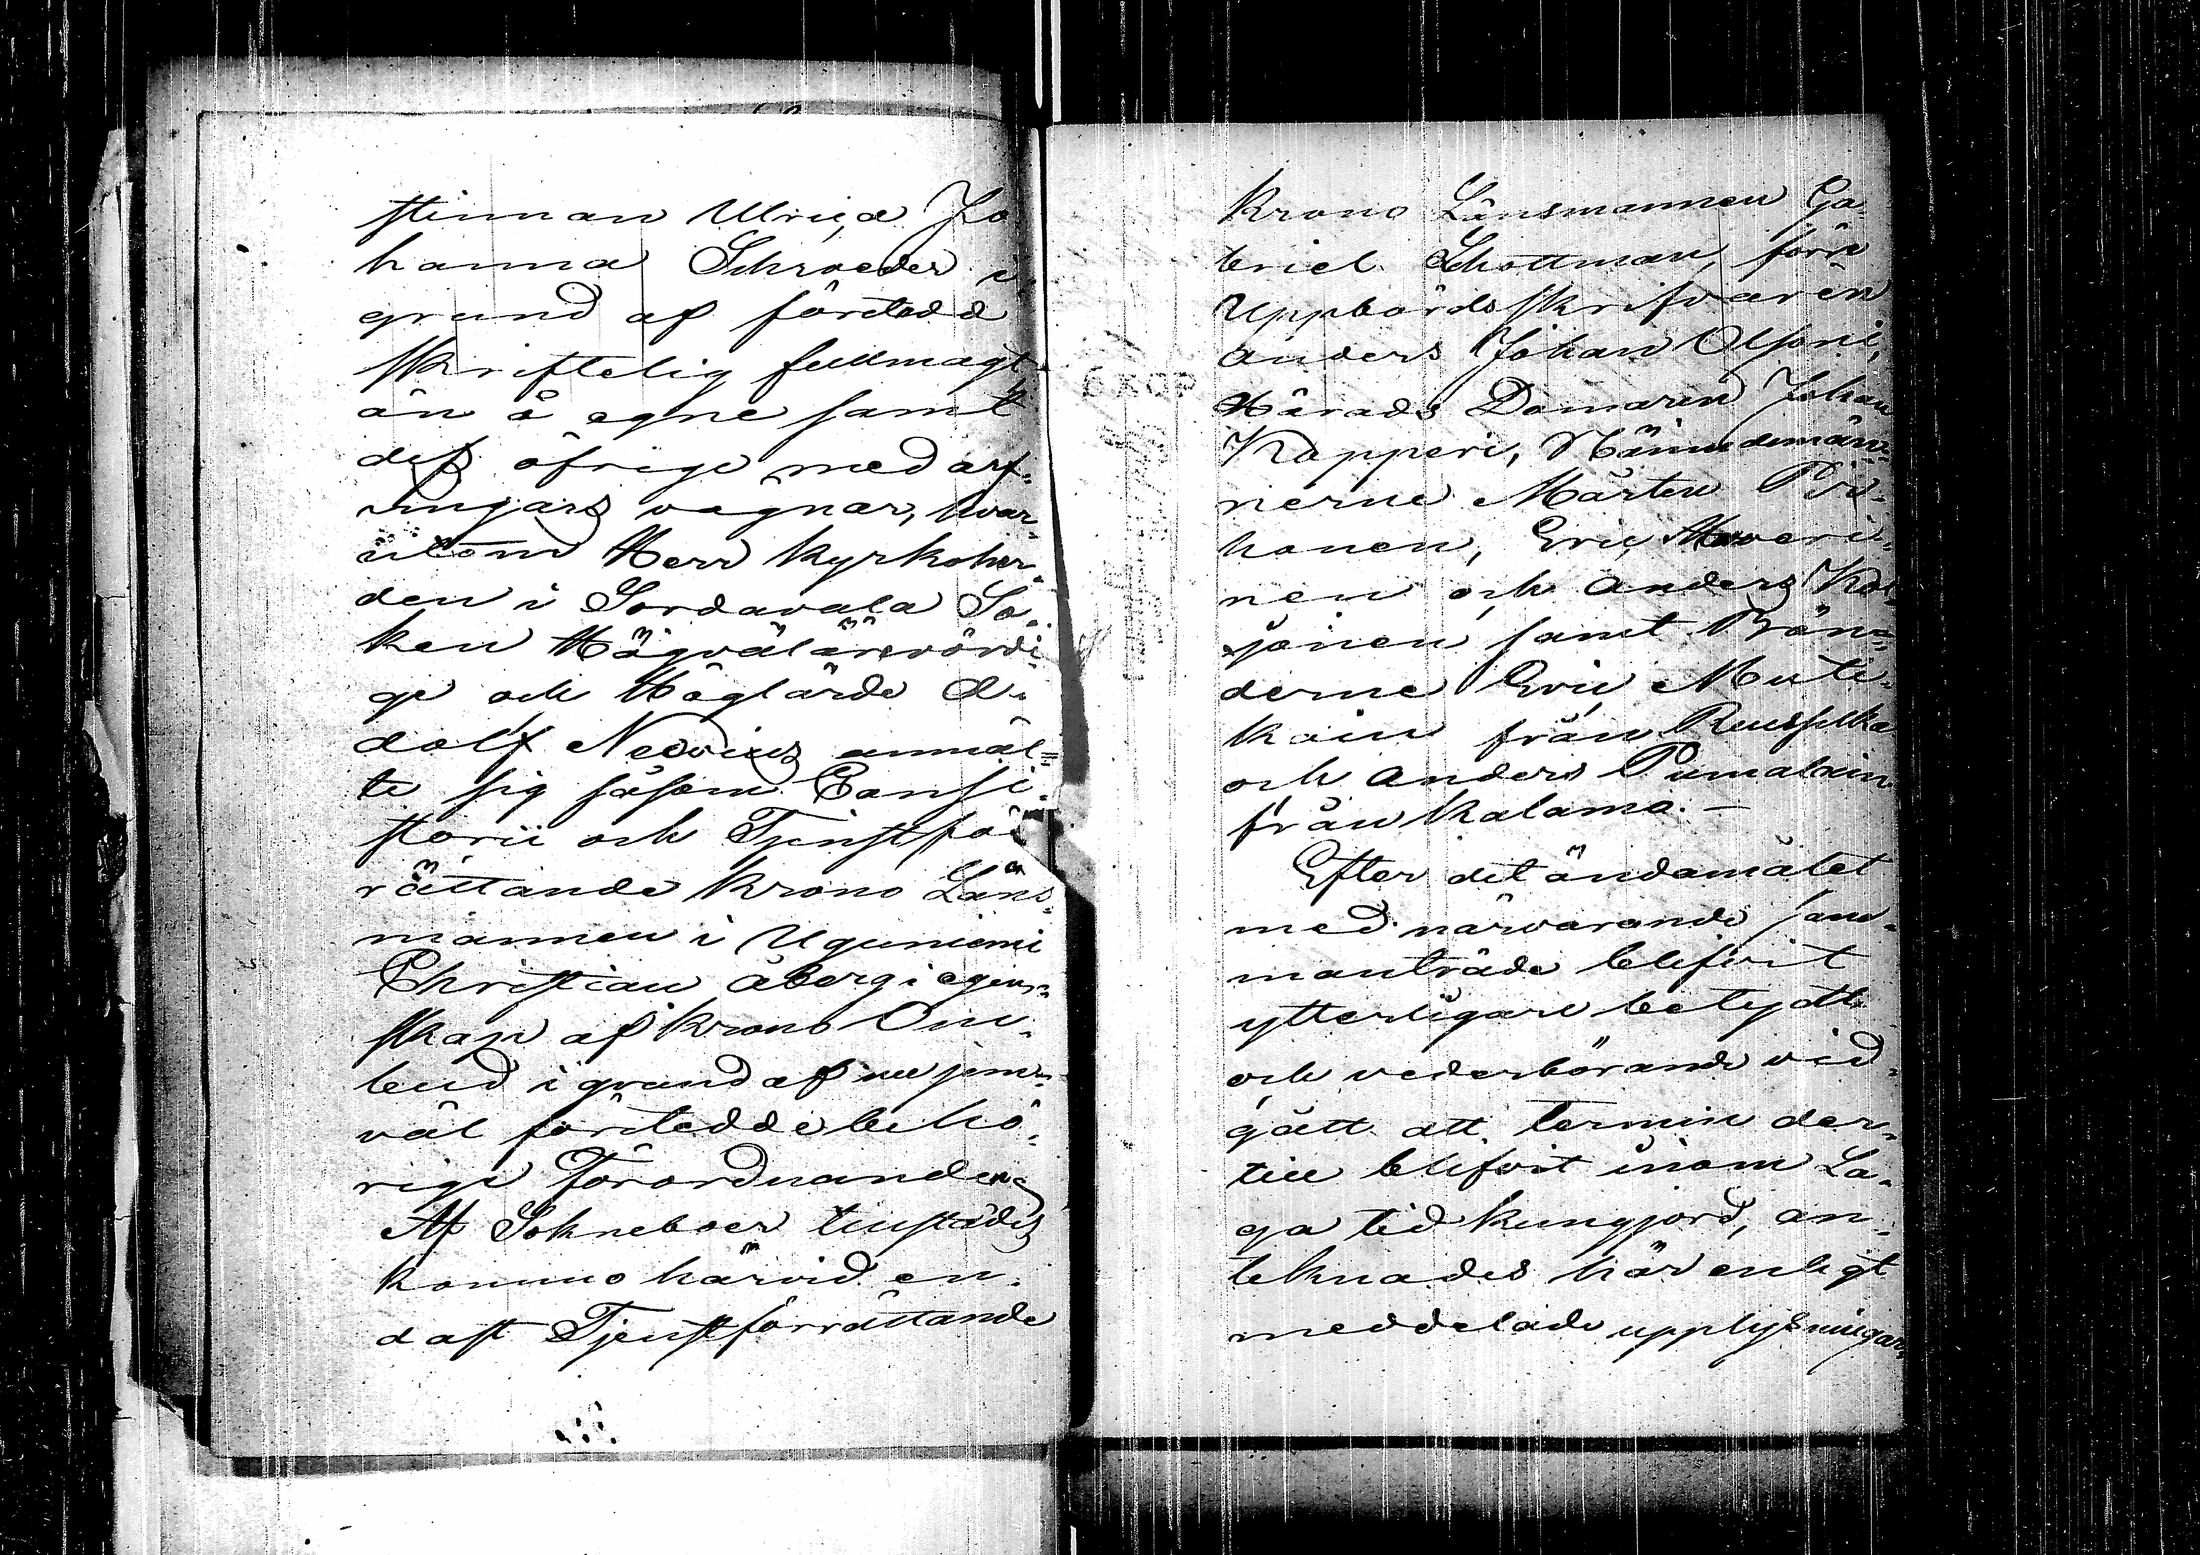 stinnan Ulrica Jo
hanna Schroeder i
grund af företedd
skriftelig fullmagt
än å egne samt
dess öfrige med arf-
vingars vägnar, hvar-
utom Herr Kyrkoher-
den i Sordavala So-
ken Högvälärevördi-
ge och Höglärde A-
dolf Neovius anmäl-
te sig såsom Consi-
storii och Tjenstför
rättande Krono Läns-
mannen i Uguniemi
Christian Åberg i egen-
skap af Krono Om-
bud i grund af nu jem-
väl företedde behö-
rige Förordnanden
Af Sokneboer tillstädes
kommo härvid en-
dast Tjenstförrättande
Krono Länsmannen Ga-
briel Schottman, förre
Uppbördsskrifvaren
Anders Johan Olsoni,
Härads Domaren Johan
Kapperi, Nämndemän-
nerne Mårten
honen, Eric
nen och Anders
jonen samt Bön-
derne Eric Muti-
kain från Reuskulka
och Anders Pumalain
från Kalamo. -
Efter det ändamålet
med närvarande sam-
manträde blifvit
ytterligare betydt
och vederbörande vid-
gått att termin der-
till blifvit inom La-
ga tid kungjord, an-
teknades här enligt
meddelade upplysningar,